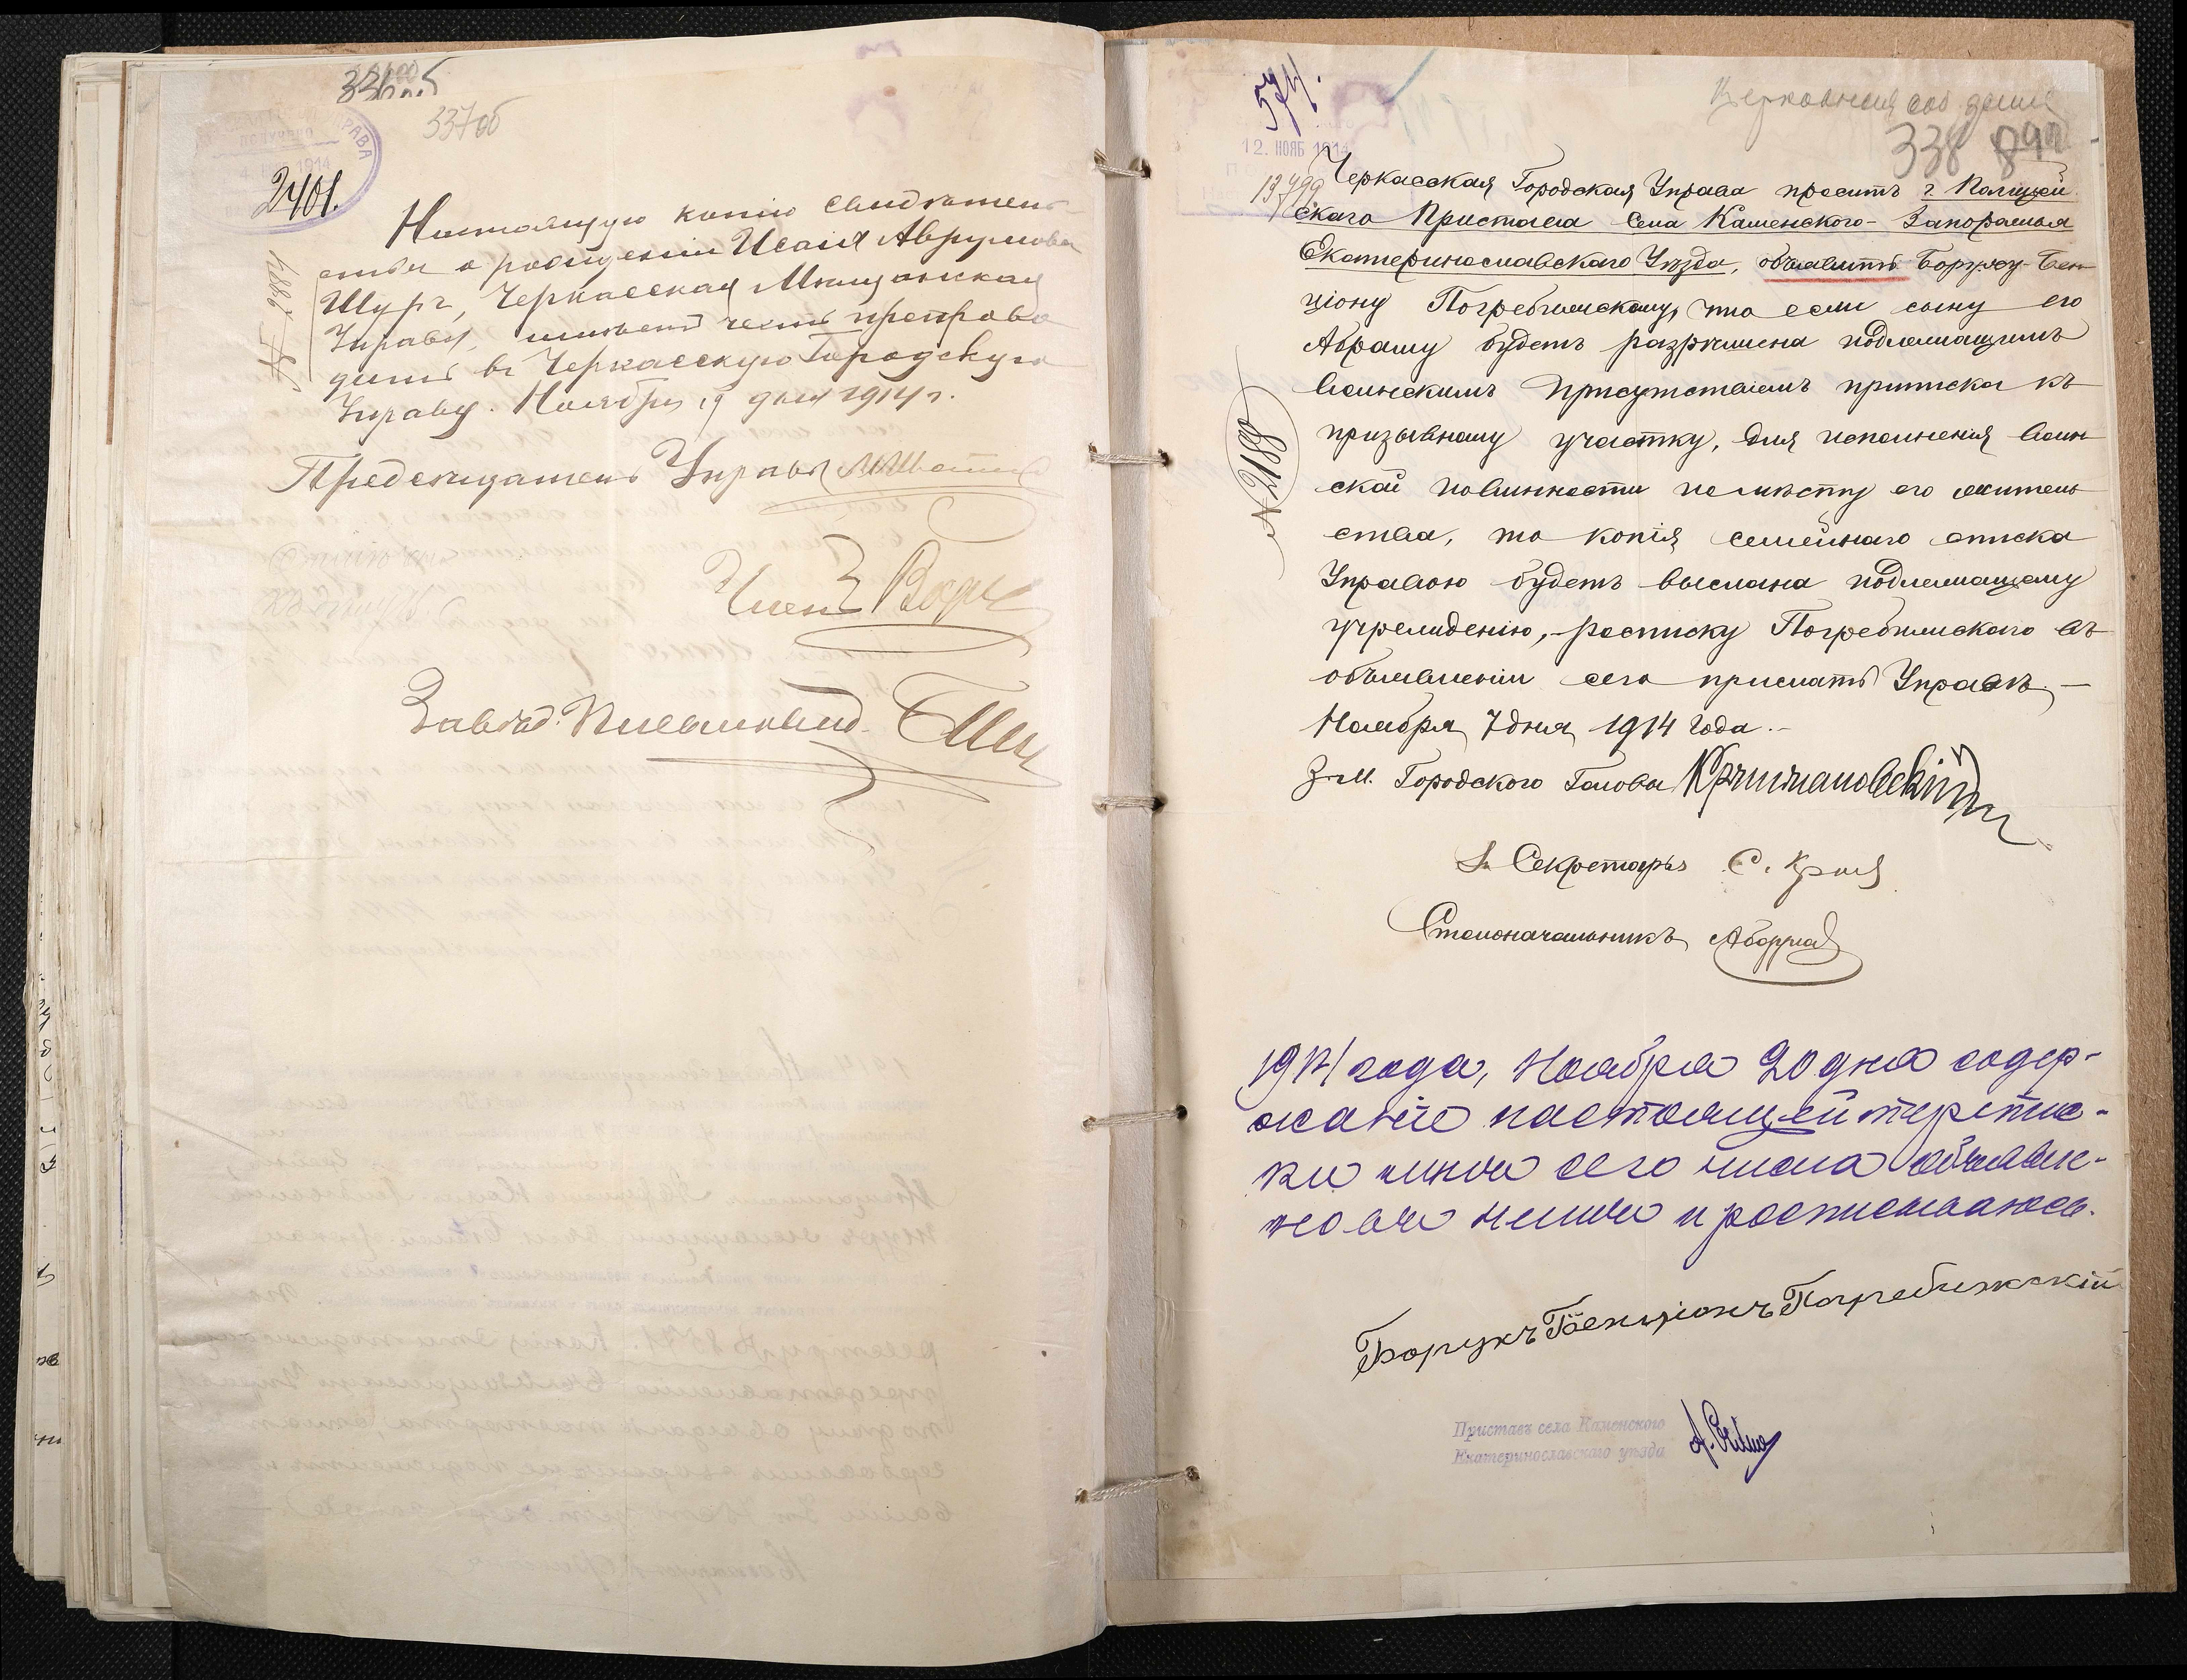 337об
2401.
Настоящую копію свидѣтель
ства о рожденіи Исаія Аврумова
Шург, Черкасская Мѣщанская
Управа, имѣетъ честь препрово
дить въ Черкасскую Городскую
Управу. Ноября 19 дня 1914 г.
Предсѣдатель Управы
Членъ
Завѣд. Письмовод.
574.
12. НОЯБ 1914
13799
338
№ 2188
Черкасская Городская Управа проситъ г. Полицей
скаго Пристава села Каменского-Запорожья
Екатеринославскаго Уѣзда, объявить Боруху-Бен
ціону Погребижскому, что если сыну его
Абраму будетъ разрѣшена подлежащимъ
воинскимъ присутствіемъ приписка къ
призывному участку, для исполненія воин
ской повинности по мѣсту его житель
ства, то копія семейнаго списка
Управою будетъ выслана подлежащему
учрежденію, – росписку Погребижского въ
объявленіи сего прислать Управѣ. –
Ноября 7 дня 1914 года. –
З. м. Городского Головы
Секретарь С.
Столоначальникъ
1914 года, Ноября 20 дня содер-
жаніе настоящей переписки
мнѣ сего числа объявле-
но въ чемъ и росписываюсь.
Борухъ Бенціонъ Погребижскій
Приставъ села Каменского
Екатеринославскаго уѣзда